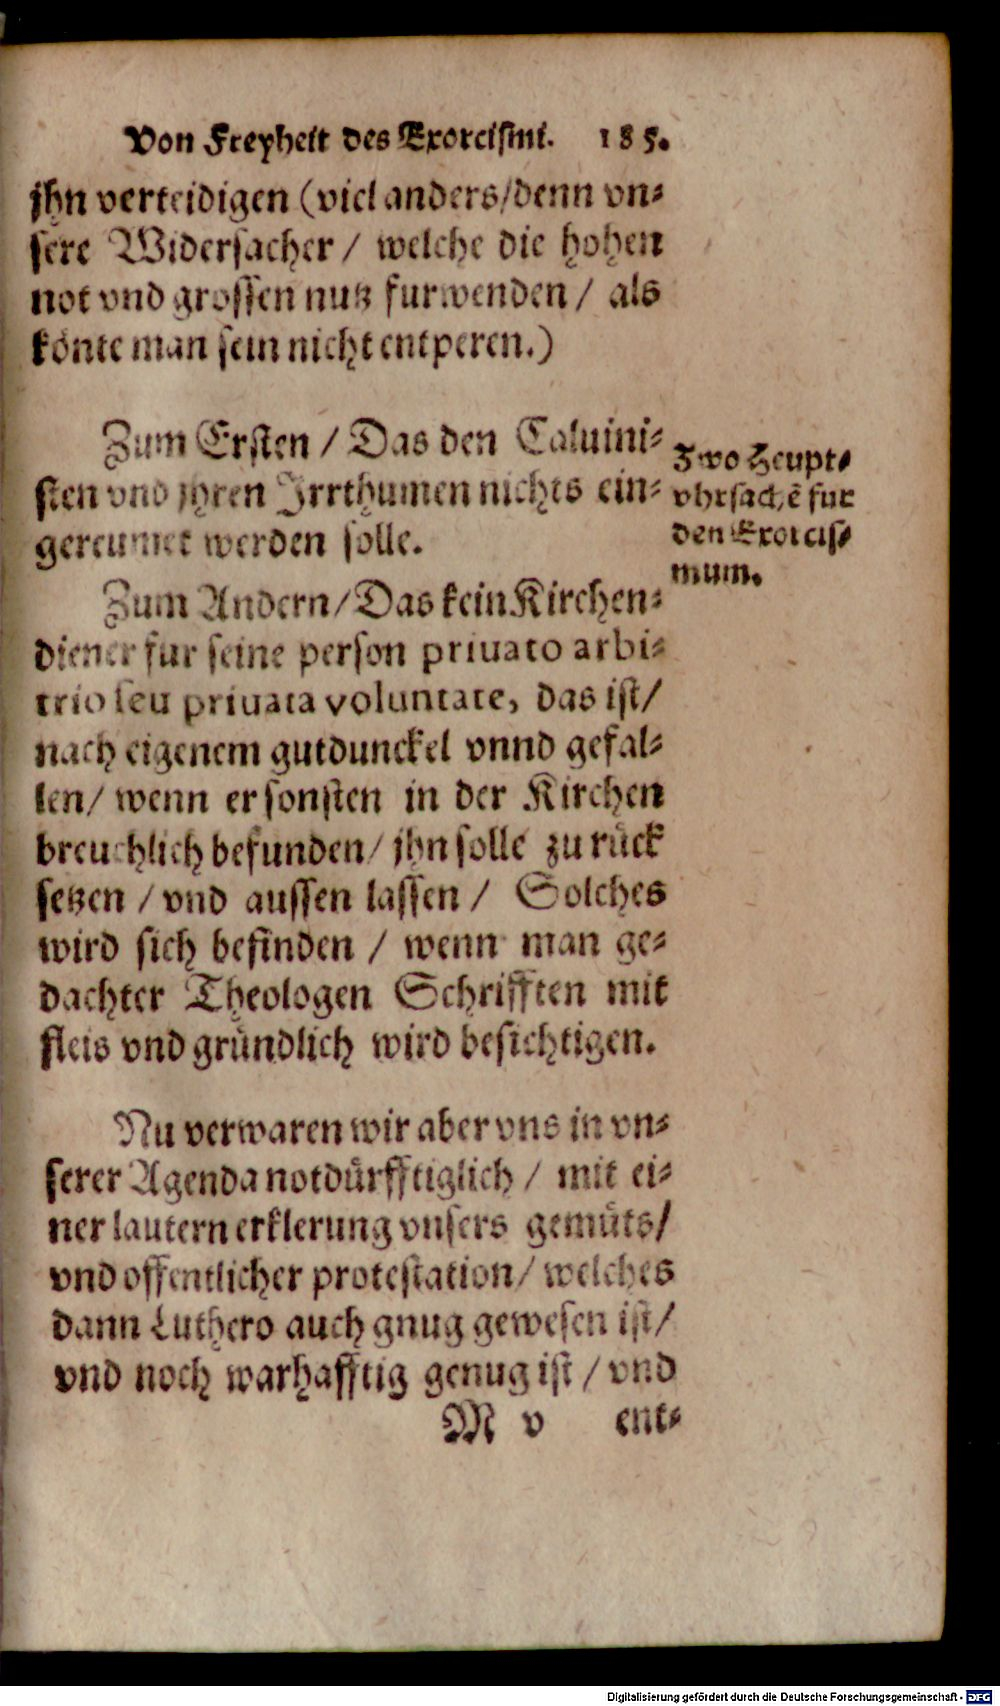 Von Freyheit des Exorcismi. 185.
jhn verteidigen (viel anders/denn vn-
sere Widersacher / welche die hohen
not vnd grossen nutz furwenden / als
könte man sein nicht entperen.)
Zum Ersten / Das den Caluini-
sten vnd jhren Jrrthumen nichts ein-
gereumet werden solle.
Zwo Heupt-
vhrsachẽ fur
den Exorcis-
mum.
Zum Andern/Das kein Kirchen-
diener fur seine person priuato arbi-
trio seu priuata voluntate, das ist/
nach eigenem gutdunckel vnnd gefal-
len/ wenn er sonsten in der Kirchen
breuchlich befunden/ jhn solle zu rück
setzen / vnd aussen lassen / Solches
wird sich befinden / wenn man ge-
dachter Theologen Schrifften mit
fleis vnd gründlich wird besichtigen.
Nu verwaren wir aber vns in vn-
serer Agenda notdürfftiglich / mit ei-
ner lautern erklerung vnsers gemüts/
vnd offentlicher protestation/ welches
dann Luthero auch gnug gewesen ist/
vnd noch warhafftig genug ist / vnd
M v ent-
Digitalisierung gefördert durch die Deutsche Forschungsgemeinschaft - DFG